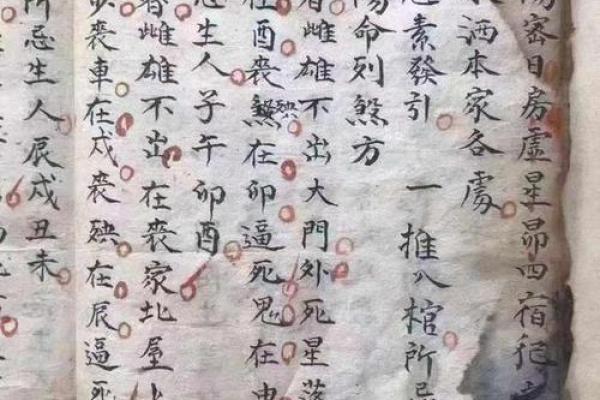 陽密日房虛星昴四宿犯
洒本家各處
忌素發引 一推入棺所忌
陽命列煞方
雌雄不出大門外死星落
在酉喪煞殃在卯逼死鬼在
忌生人子午卯酉
者雌雄不出在喪家北屋
喪車在戌喪殃在辰逼死
所忌生人辰戌丑未